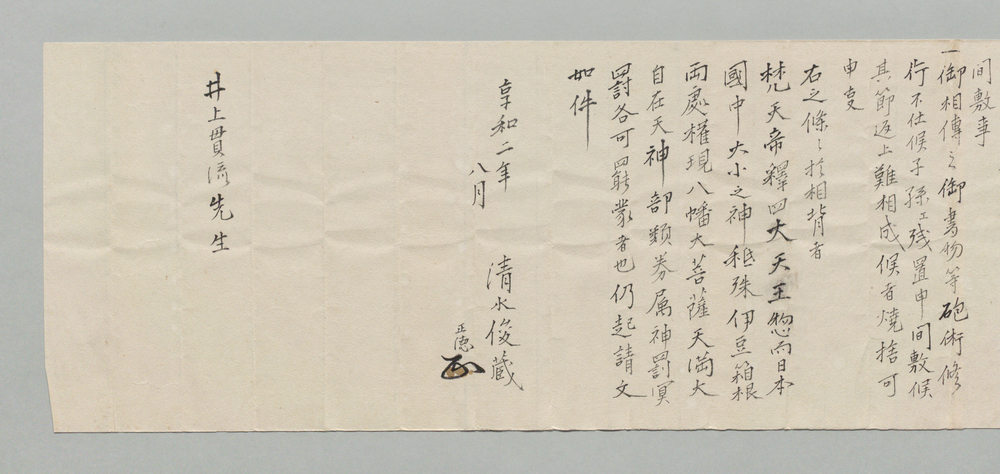 間敷事
一御相傳之御書物等砲術修
行不仕候子孫江残置申間敷候
其節返上難相成候者焼捨可
申事
右之條々於相背者
梵天帝釋四大天王惣而日本
國中大小之神祇殊伊豆箱根
両處權現八幡大菩薩天満大
自在天神部類眷属神罰冥
罰各可罷蒙者也仍起請文
如件
享和二年
八月
清水俊蔵
正徳
井上貫流先生